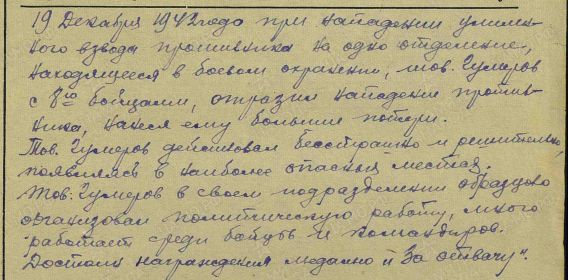 19 Декабря 1942 года при нападении усилен-
ного взвода противника на одно отделение,
находящееся в боевом охранении, тов. Гумеров
с 8ю бойцами, отразил нападение против-
ника, нанеся ему большие потери.
Тов. Гумеров действовал бесстрашно и решительно,
появлялся в наиболее опасных местах.
Тов. Гумеров в своем подразделении образцово
организовал политическую работу, много
работает среди бойцов и командиров.
Достоин награждения медалью „За отвагу".